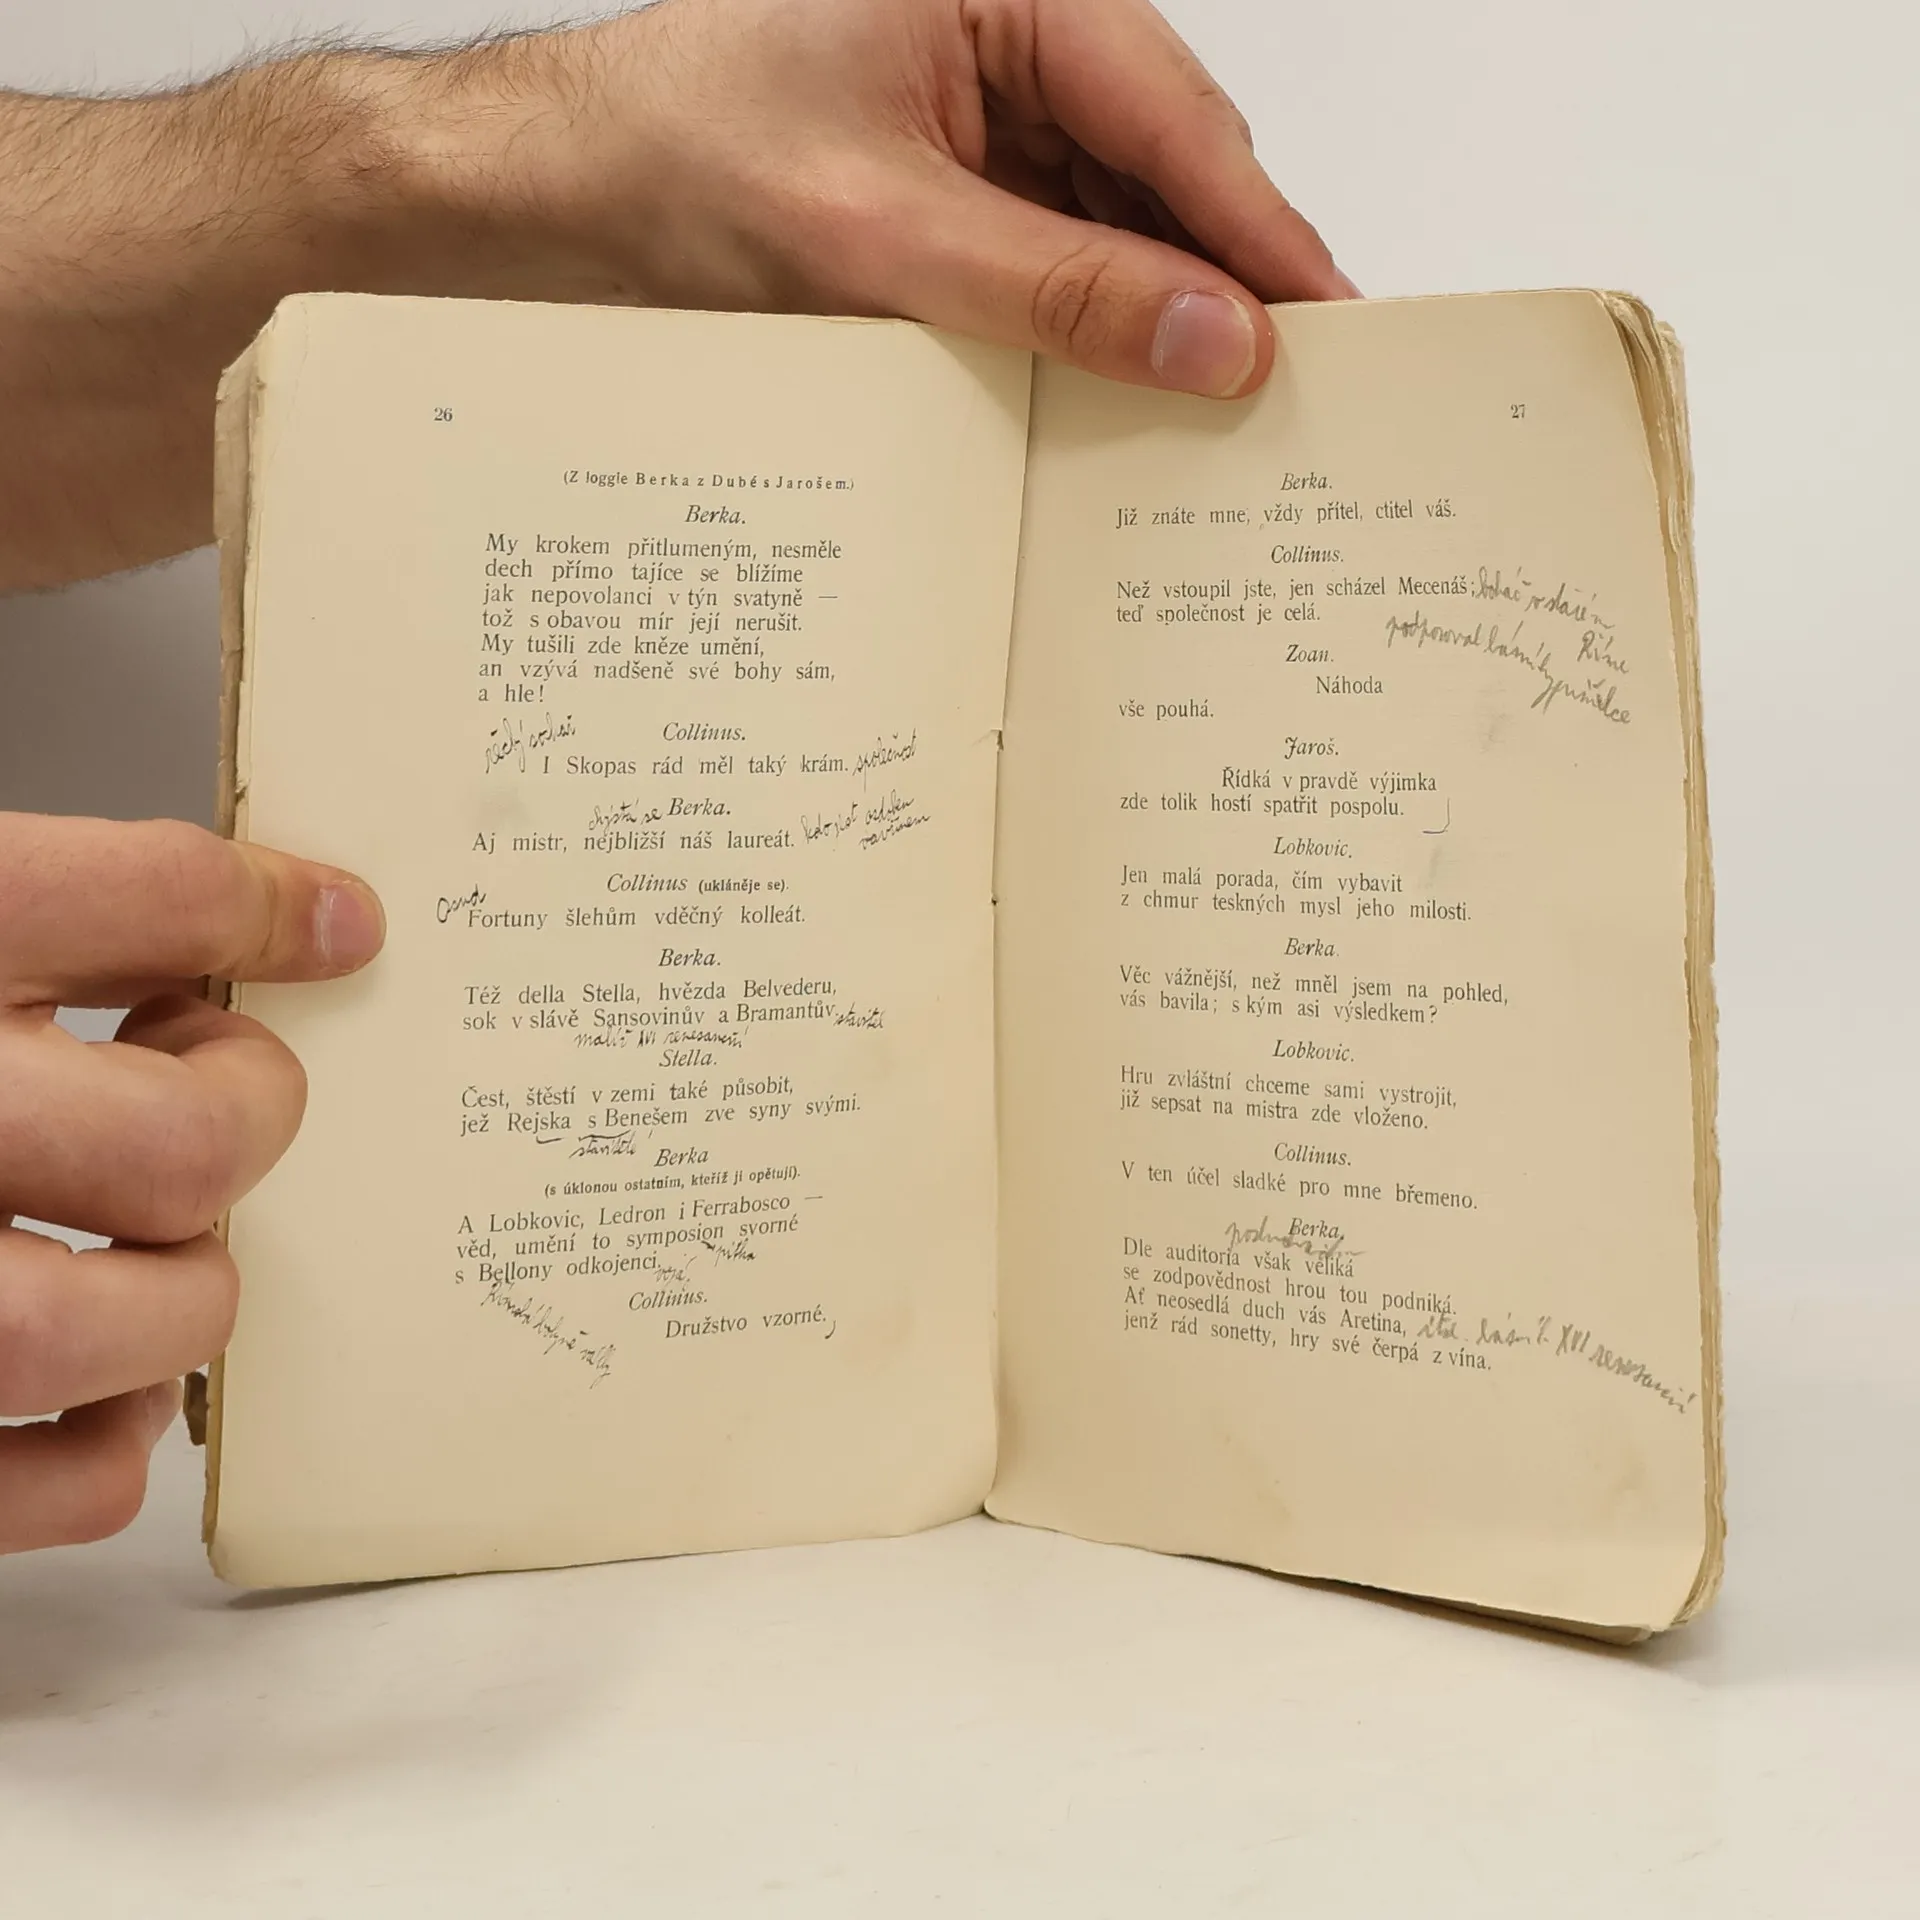 26
(Z loggie Berka z Dubé s Jarošem.)
Berka.
My krokem přitlumeným, nesměle
dech přímo tajíce se blížíme
jak nepovolanci v týn svatyně —
tož s obavou mír její nerušit.
My tušili zde kněze umění,
an vzývá nadšeně své bohy sám,
a hle!
řecký sochař
Collinus.
I Skopas rád měl taký krám. společnost
chystá se Berka.
Aj mistr, nejbližší náš laureát. kdo jest ozdoben
vavřínem
Collinus (ukláněje se).
Osud
Fortuny šlehům vděčný kolleát.
Berka.
Též della Stella, hvězda Belvederu,
sok v slávě Sansovinův a Bramantův. stavitel
malíř XVI renesanční
Stella.
Čest, štěstí v zemi také působit,
jež Rejska s Benešem zve syny svými.
stavitelé
Berka
(s úklonou ostatním, kteříž ji opětují).
A Lobkovic, Ledron i Ferrabosco —
věd, umění to symposion svorné
pitka
s Bellony odkojenci.
Římská bohyně války
Collinus.
Družstvo vzorné.
27
Berka.
Již znáte mne, vždy přítel, ctitel váš.
Collinus.
Než vstoupil jste, jen scházel Mecenáš; boháč v starém
Římě
teď společnost je celá.
podporoval básníky
umělce
Zoan.
Náhoda
vše pouhá.
Jaroš.
Řídká v pravdě výjimka
zde tolik hostí spatřit pospolu.
Lobkovic.
Jen malá porada, čím vybavit
z chmur teskných mysl jeho milosti.
Berka.
Věc vážnější, než mněl jsem na pohled,
vás bavila; s kým asi výsledkem?
Lobkovic.
Hru zvláštní chceme sami vystrojit,
již sepsat na mistra zde vloženo.
Collinus.
V ten účel sladké pro mne břemeno.
Berka.
Dle auditoria však veliká
se zodpovědnost hrou tou podniká.
Ať neosedlá duch vás Aretina, ital. básník XVI renesanční
jenž rád sonetty, hry své čerpá z vína.